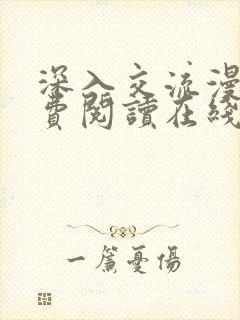 深入交流漫
費閱讀在綫
一簾憂傷